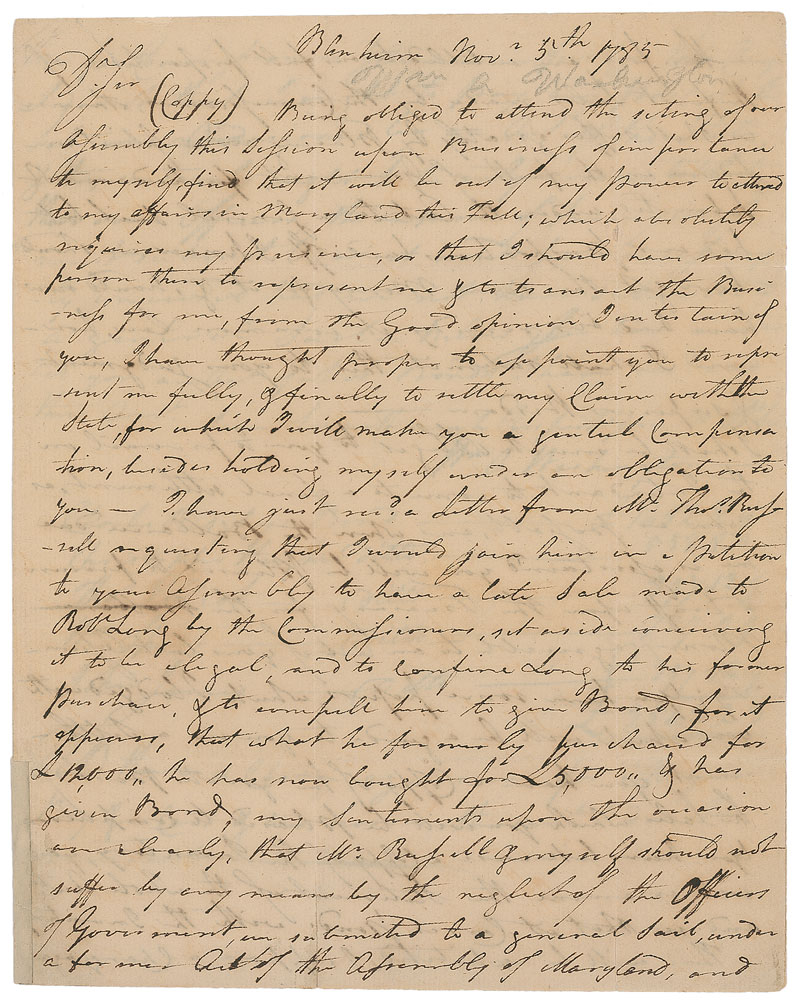 Blenheim Nov.r 5th 1785
Dr Sir
Wm A Washington
(Coppy) Being obliged to attend the seting of our
Assembly this Session upon Business of importance
to myself, find that it will be out of my power to attend
to my affairs in Maryland this Fall; which absolutely
requires my presence, or that I should have some
person there to represent me & to transact the Busi-
-ness for me, from the Good opinion I entertain of
you, I have thought proper to appoint you to repre
-sent me fully, & finally to settle my Claim with the
State, for which I will make you a genteel Compensa
tion, besides holding myself under an obligation to
you — I have just recd. a Letter from Mr. Thos. Rus-
-sell requesting that I would join him in a Petition
to your Assembly to have a late Sale made to
Robt. Long by the Commissioners, set aside conceiving
it to be elegal, and to confine Long to his former
purchase, & to compell him to give Bond, for it
appears, that what he formerly purchased for
£12,000,, he has now bought for £5,000,, & has
given Bond, my Sentiments upon the occasion
are clearly, that Mr. Russell & myself should not
suffer by any means by the neglect of the Officers
of Goverment, we submitted to a general Sail, under
a former Act of the Assembly of Maryland, and